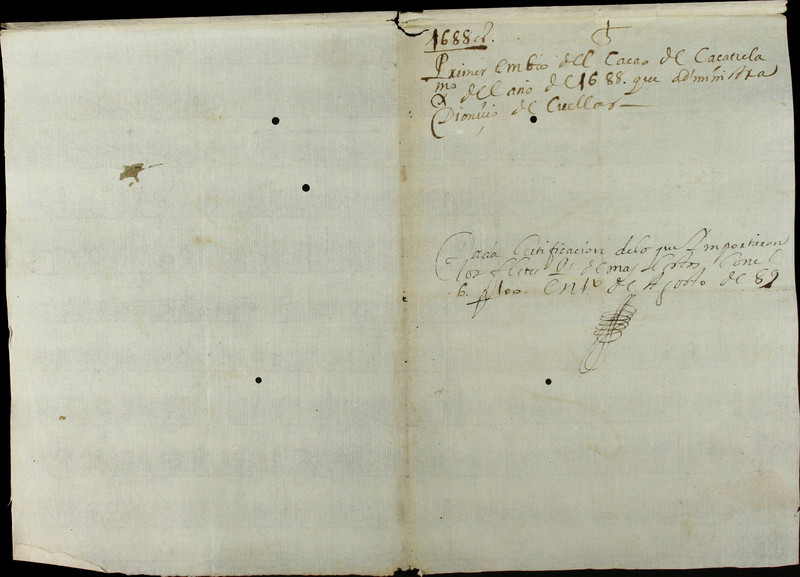 1688 as.
Primer embio del Cacao de Cacatula
del año de 1688. que administra
Dionicio de Cuellar
Dada Certificacion delo que Importaron
los fletes Y demas
en 1º de Agosto de 89